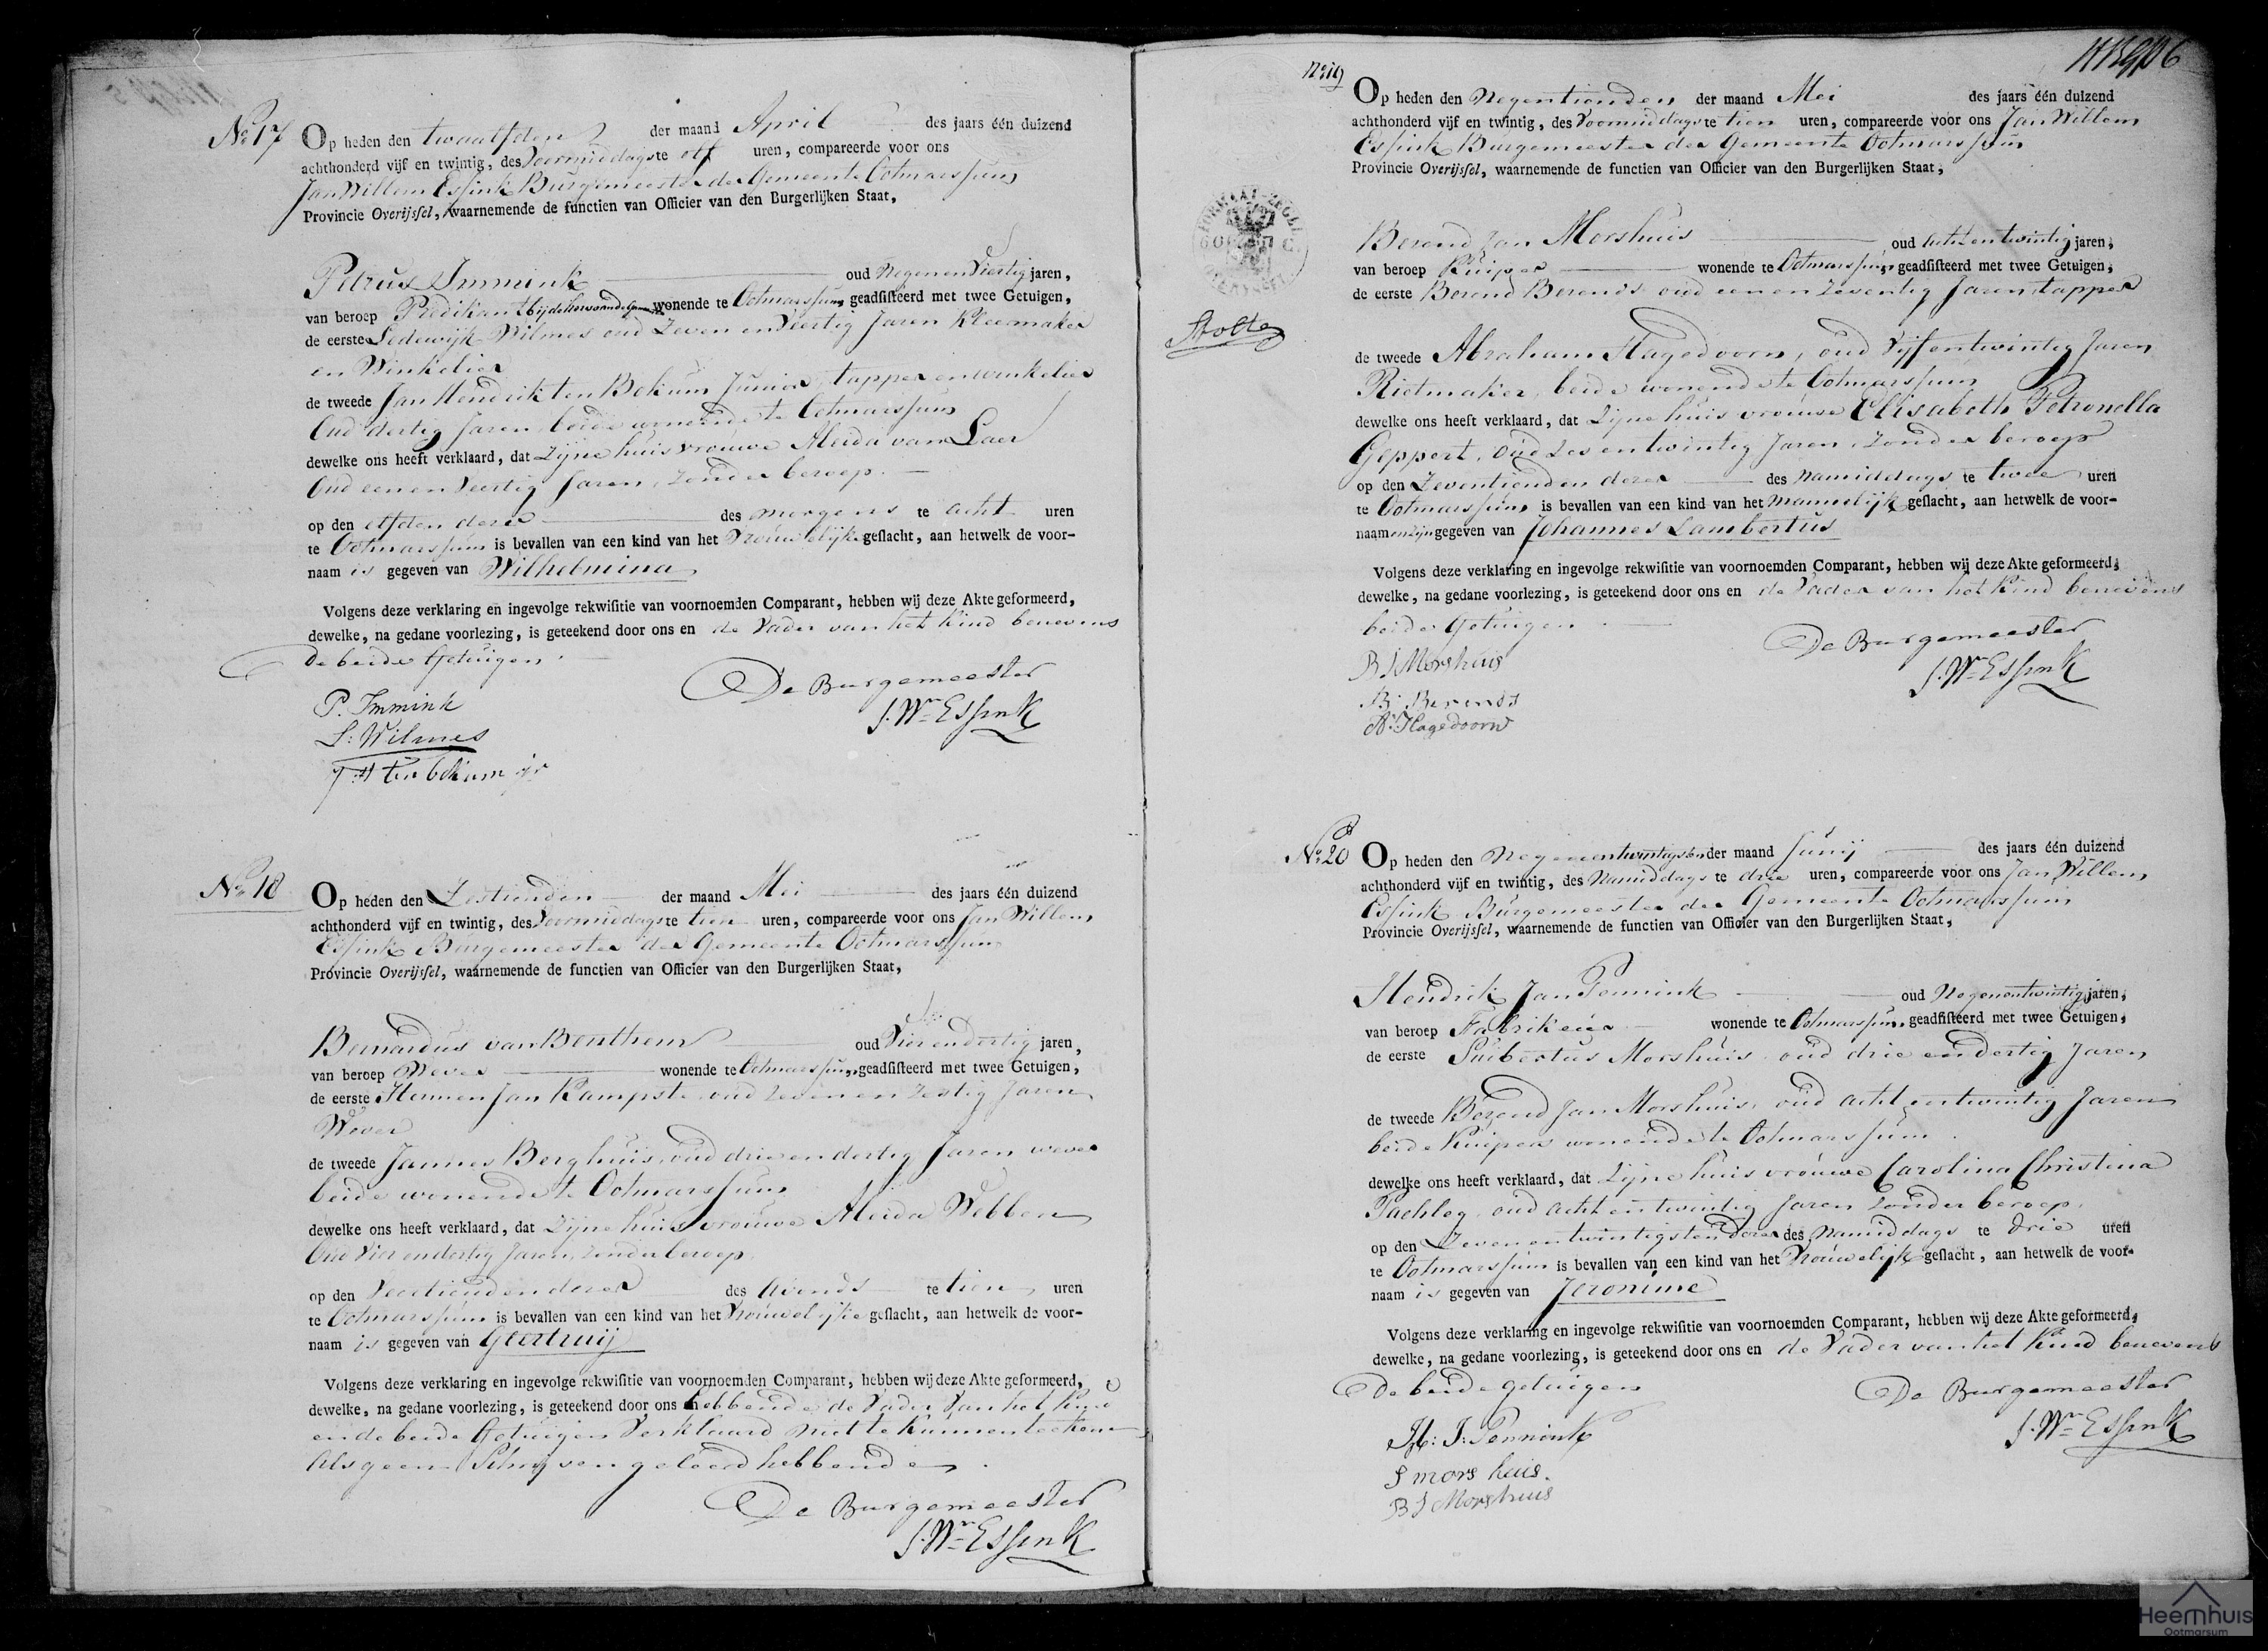 No 17
Op heden den twaalfden der maand April des jaars één duizend
achthonderd vijf en twintig, des Voormiddags te elf uren, compareerde voor ons
Jan Willem Essink Burgemeester der Gemeente Ootmarssum
Provincie Overijssel, waarnemende de functien van Officier van den Burgerlijken Staat,
Petrus Immink oud Negenenveertig jaren,
van beroep Predikant bij de Hervormde Gemeente wonende te Ootmarssum geadsisteerd met twee Getuigen,
de eerste Lodewijk Wilmes oud Zeven en Veertig Jaren Kleermaker
en Winkelier
de tweede Jan Hendrik ten Bokum Junior, tapper en winkelier
Oud dertig Jaren, beide wonende te Ootmarssum
dewelke ons heeft verklaard, dat Zijne huisvrouwe Aleida van Laer
Oud een en Veertig Jaren, Zonder beroep.
op den elfden dezer des morgens te acht uren
te Ootmarssum is bevallen van een kind van het Vrouwelijke geslacht, aan hetwelk de voor-
naam is gegeven van Wilhelmina
Volgens deze verklaring en ingevolge rekwisitie van voornoemden Comparant, hebben wij deze Akte geformeerd,
dewelke, na gedane voorlezing, is geteekend door ons en de Vader van het Kind benevens
de beide Getuigen.
De Burgemeester
P. Immink
J. Wm Essink
L: Wilmes
J: H ten bokum jr
No 18
Op heden den Zestienden der maand Mei des jaars één duizend
achthonderd vijf en twintig, des Voormiddags te tien uren, compareerde voor ons Jan Willem
Essink Burgemeester der Gemeente Ootmarssum
Provincie Overijssel, waarnemende de functien van Officier van den Burgerlijken Staat,
Bernardus van Benthem oud Vierendertig jaren,
van beroep Wever wonende te Ootmarssum, geadsisteerd met twee Getuigen,
de eerste Hermen Jan Kampste oud zeven en zestig Jaren
Wever
de tweede Jannes Berghuis, oud drie en dertig Jaren wever
beide wonende te Ootmarssum
dewelke ons heeft verklaard, dat Zijne huisvrouwe Aleida Webben
Oud Vier en dertig Jaren, zonder beroep.
op den Veertienden dezer des Avonds te tien uren
te Ootmarssum is bevallen van een kind van het Vrouwelijke geslacht, aan hetwelk de voor-
naam is gegeven van Geertruij
Volgens deze verklaring en ingevolge rekwisitie van voornoemden Comparant, hebben wij deze Akte geformeerd,
dewelke, na gedane voorlezing, is geteekend door ons hebbende de Vader Van het Kind
en de beide Getuigen Verklaard niet te Kunnen teekenen
Als geen Schrijven geleerd hebbende.
De Burgemeester
J. Wm Essink
No 19
Op heden den Negentienden der maand Mei des jaars één duizend
achthonderd vijf en twintig, des Voormiddags te tien uren, compareerde voor ons Jan Willem
Essink Burgemeester der Gemeente Ootmarssum
Provincie Overijssel, waarnemende de functien van Officier van den Burgerlijken Staat,
Berend Jan Morshuis oud Achtentwintig jaren,
van beroep Kuiper wonende te Ootmarssum geadsisteerd met twee Getuigen,
de eerste Berend Berends oud een en zeventig Jaren, tapper
Stolte
de tweede Abraham Hagedoorn, oud Vijfentwintig Jaren
Rietmaker, beide wonende te Ootmarssum
dewelke ons heeft verklaard, dat Zijne huisvrouwe Elisabeth Petronella
Geppert, oud Zes en twintig Jaren, Zonder beroep
op den Zeventienden dezer des Namiddags te twee uren
te Ootmarssum is bevallen van een kind van het Mannelijk geslacht, aan hetwelk de voor-
naam en zijn gegeven van Johannes Lambertus
Volgens deze verklaring en ingevolge rekwisitie van voornoemden Comparant, hebben wij deze Akte geformeerd,
dewelke, na gedane voorlezing, is geteekend door ons en de Vader van het Kind benevens
beide Getuigen
De Burgemeester
B J Morshuis
J. Wm Essink
B: Berends
A: Hagedoorn
No 20
Op heden den Negenentwintigsten der maand Junij des jaars één duizend
achthonderd vijf en twintig, des Namiddags te drie uren, compareerde voor ons Jan Willem
Essink Burgemeester der Gemeente Ootmarssum
Provincie Overijssel, waarnemende de functien van Officier van den Burgerlijken Staat,
Hendrik Jan Pennink oud Negenentwintig jaren,
van beroep Fabrikeur wonende te Ootmarssum geadsisteerd met twee Getuigen,
de eerste Suibertus Morshuis oud drie en dertig Jaren
de tweede Berend Jan Morshuis, oud acht en twintig Jaren
beide Kuipers wonende te Ootmarssum.
dewelke ons heeft verklaard, dat Zijne huisvrouwe Carolina Christina
oud acht en twintig Jaren Zonder beroep.
op den Zeven en twintigsten dezer des Namiddags te drie uren
te Ootmarssum is bevallen van een kind van het Vrouwelijk geslacht, aan hetwelk de voor-
naam is gegeven van Jeronime
Volgens deze verklaring en ingevolge rekwisitie van voornoemden Comparant, hebben wij deze Akte geformeerd,
dewelke, na gedane voorlezing, is geteekend door ons en de Vader van het Kind benevens
De beide getuigen
De Burgemeester
H: J: Pennink
J. Wm Essink
S mors huis.
B J Morshuis
Heemhuis
Ootmarsum